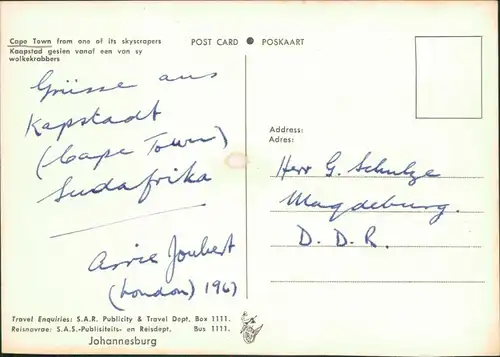 Cape Town from one of its skyscrapers
Kaapstad gesien vanaf een van sy
wolkekrabbers
POST CARD ● POSKAART
Grüsse aus
Kapstadt
(Cape Town)
Südafrika
Joubert
(London) 1967
Address:
Adres:
Herr G. Schulze
Magdeburg.
D. D. R.
Travel Enquiries: S.A.R. Publicity & Travel Dept, Box 1111.
Reisnavrae: S.A.S.-Publisiteits- en Reisdept, Bus 1111.
Johannesburg